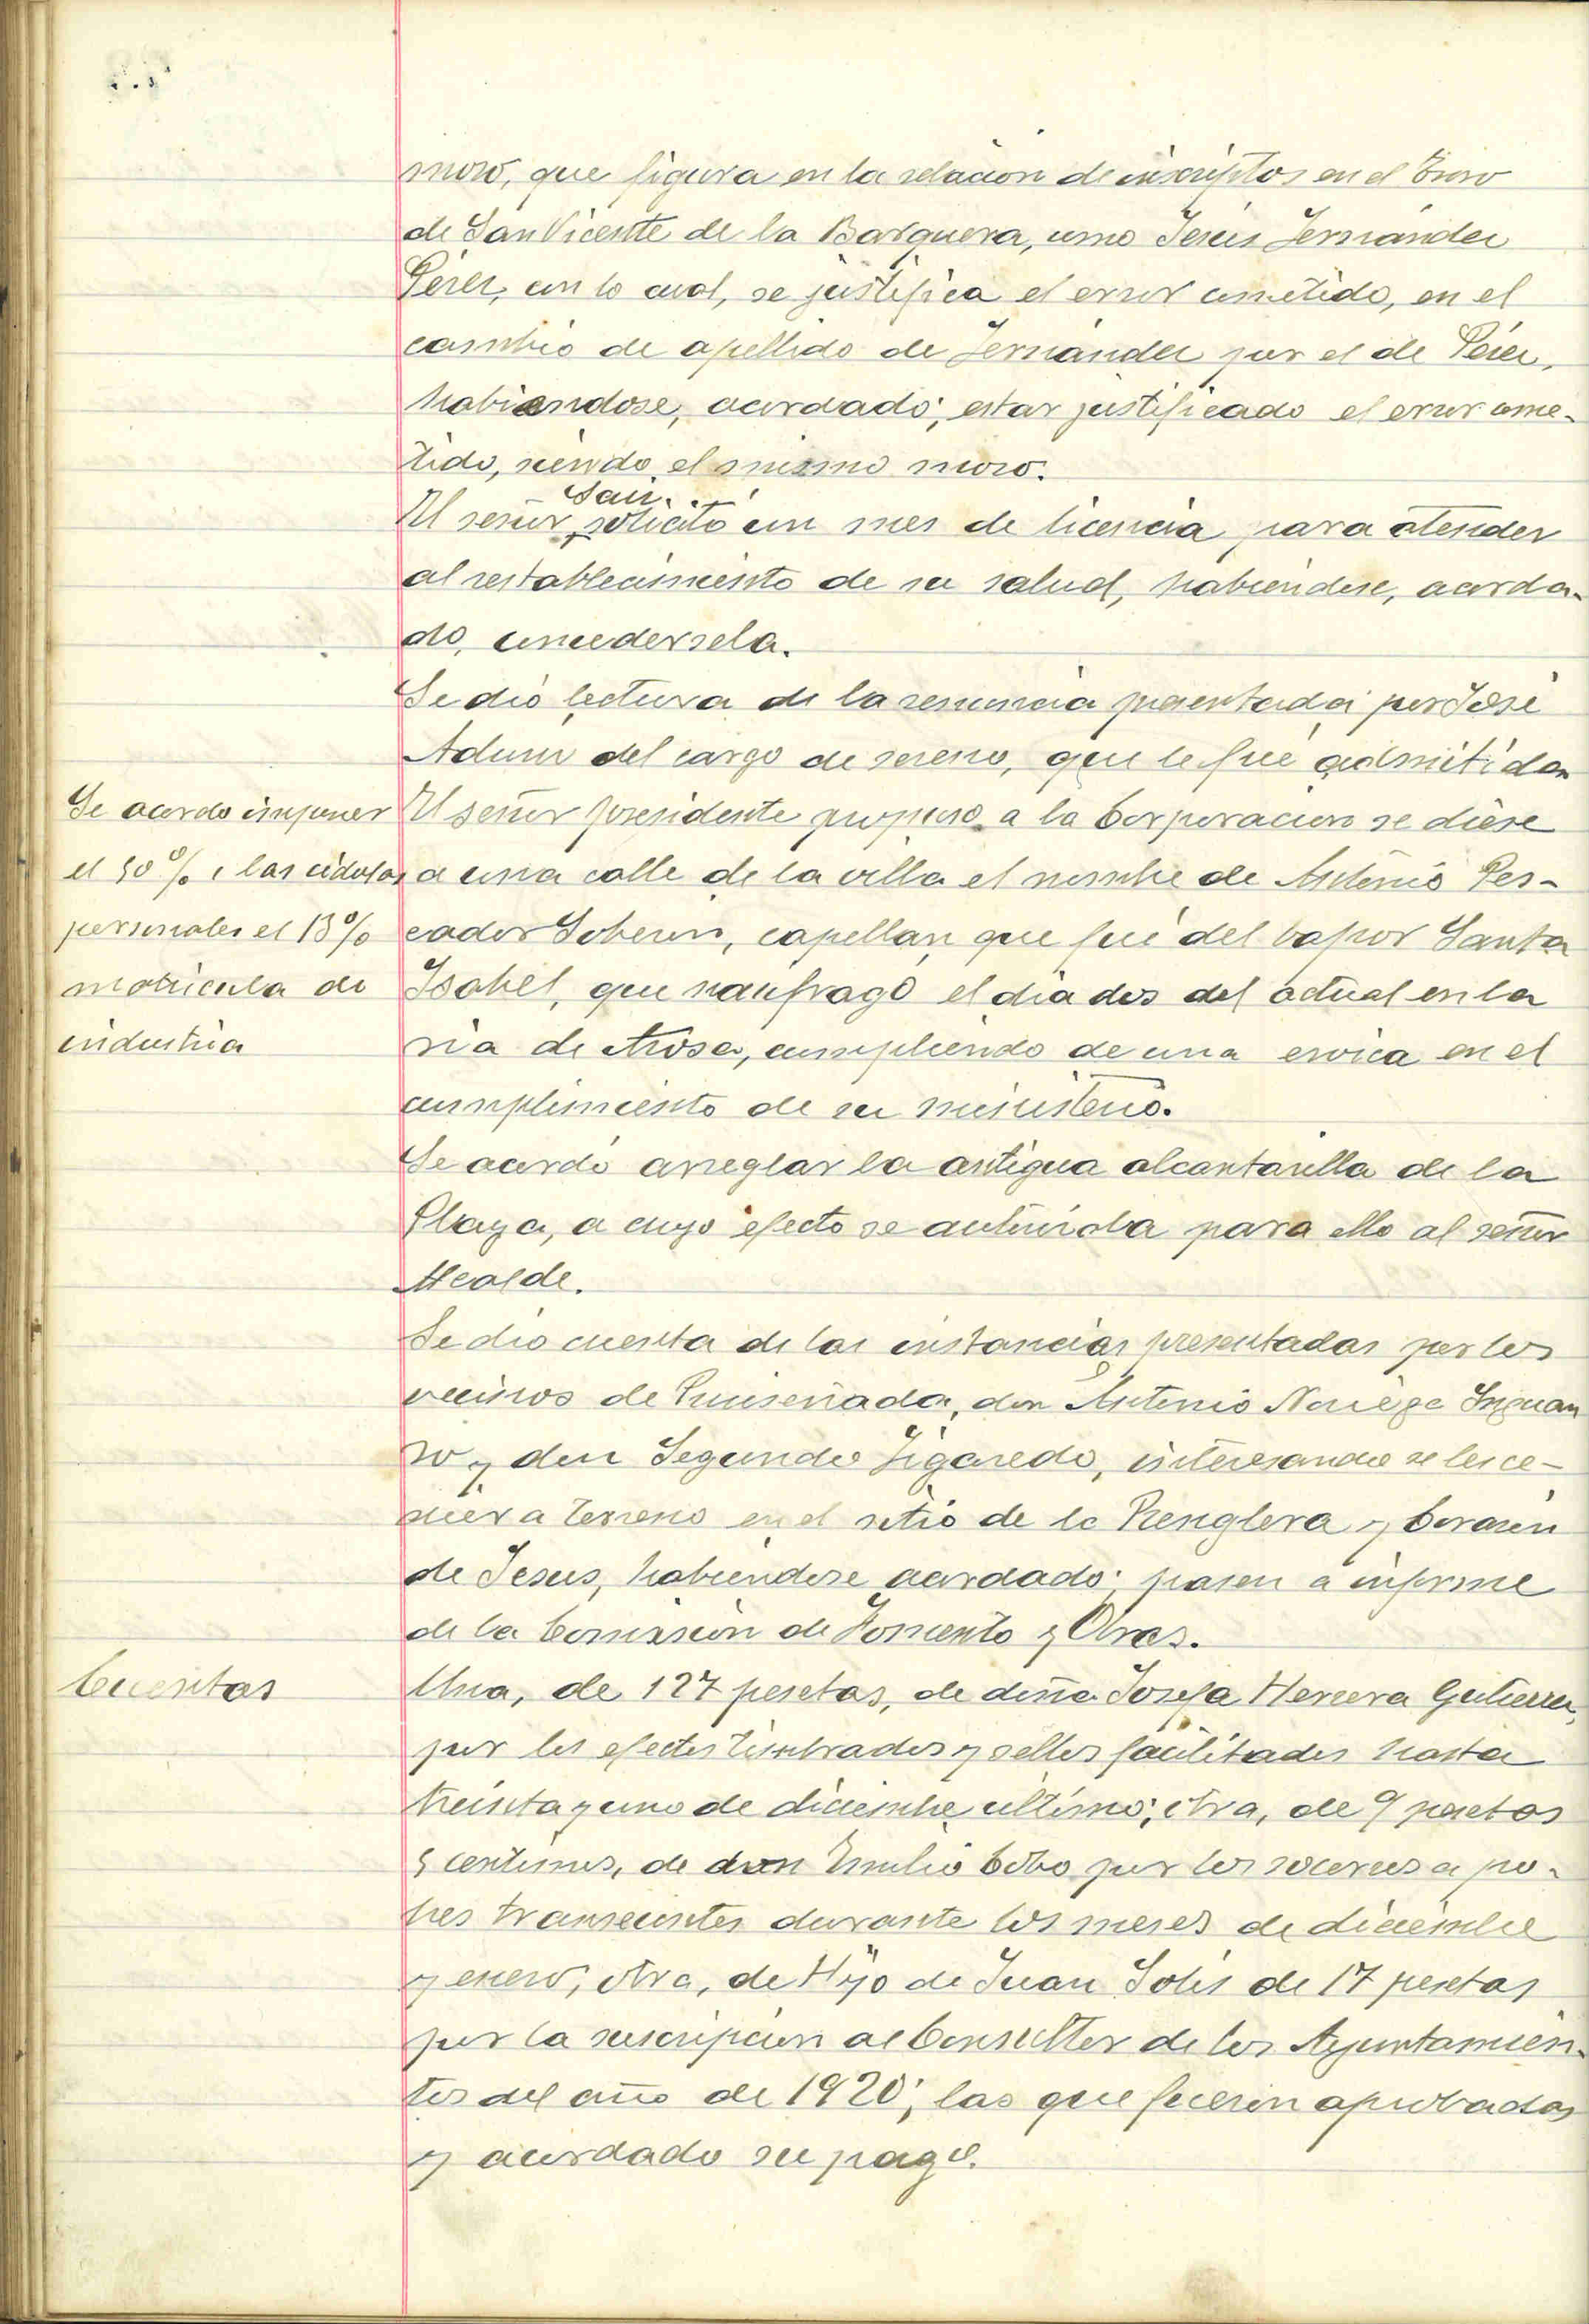 mozo, que figura en la relacion de inscriptos en el Trozo
de San Vicente de la Barquera, como Jesús Fernández
Pérez, con lo cual, se justifica el error cometido, en el
cambio de apellido de Fernández por el de Pérez,
habiendose, acordado, estar justificado el error come-
tido, siendo el mismo mozo.
San.
El señor solicitó un mes de licencia para atender
al restablecimiento de su salud, habiendose, acorda-
do, concedersela.
Se dió lectura de la renuncia presentada por José
del cargo de sereno, que le fué admitida
Se acordo imponer
el 50% a las cédulas
personales el 13%
matricula de
industria
El señor presidente propuso a la Corporacion se diese
a una calle de la villa el nombre de Antonio Pes-
cador Soberon, capellan que fué del vapor Santa
Isabel, que naufragó el dia dos del actual en la
ria de Arosa, cumpliendo de una eroica en el
cumplimiento de su ministerio.
Se acordó arreglar la antigua alcantarilla de la
Playa, a cuyo efecto se autorizaba para ello al señor
Alcalde.
Se dió cuenta de las instancias presentadas por los
vecinos de Lumseñada, don Antonio Noriega Inguan
zo y don Segundo Figaredo, interesando se les ce-
diera terreno en el sitio de la Renglera y Corazon
de Jesus, habiendose acordado: pasen a informe
de la Comision de Fomento y Obras.
Cuentas
Una, de 127 pesetas, de doña Josefa Herrera Gutierrez,
por los efectos timbrados y sellos facilitados hasta
treinta y uno de diciembre último; otra, de 9 pesetas
5 centimos, de don Emilio Cobo por los socorros a po-
bres transeuntes durante los meses de diciembre
y enero; otra, de Hijo de Juan Solis de 17 pesetas
por la suscripcion al Consultor de los Ayuntamien-
tos del año de 1920; las que fueron aprobadas
y acordado su pago.